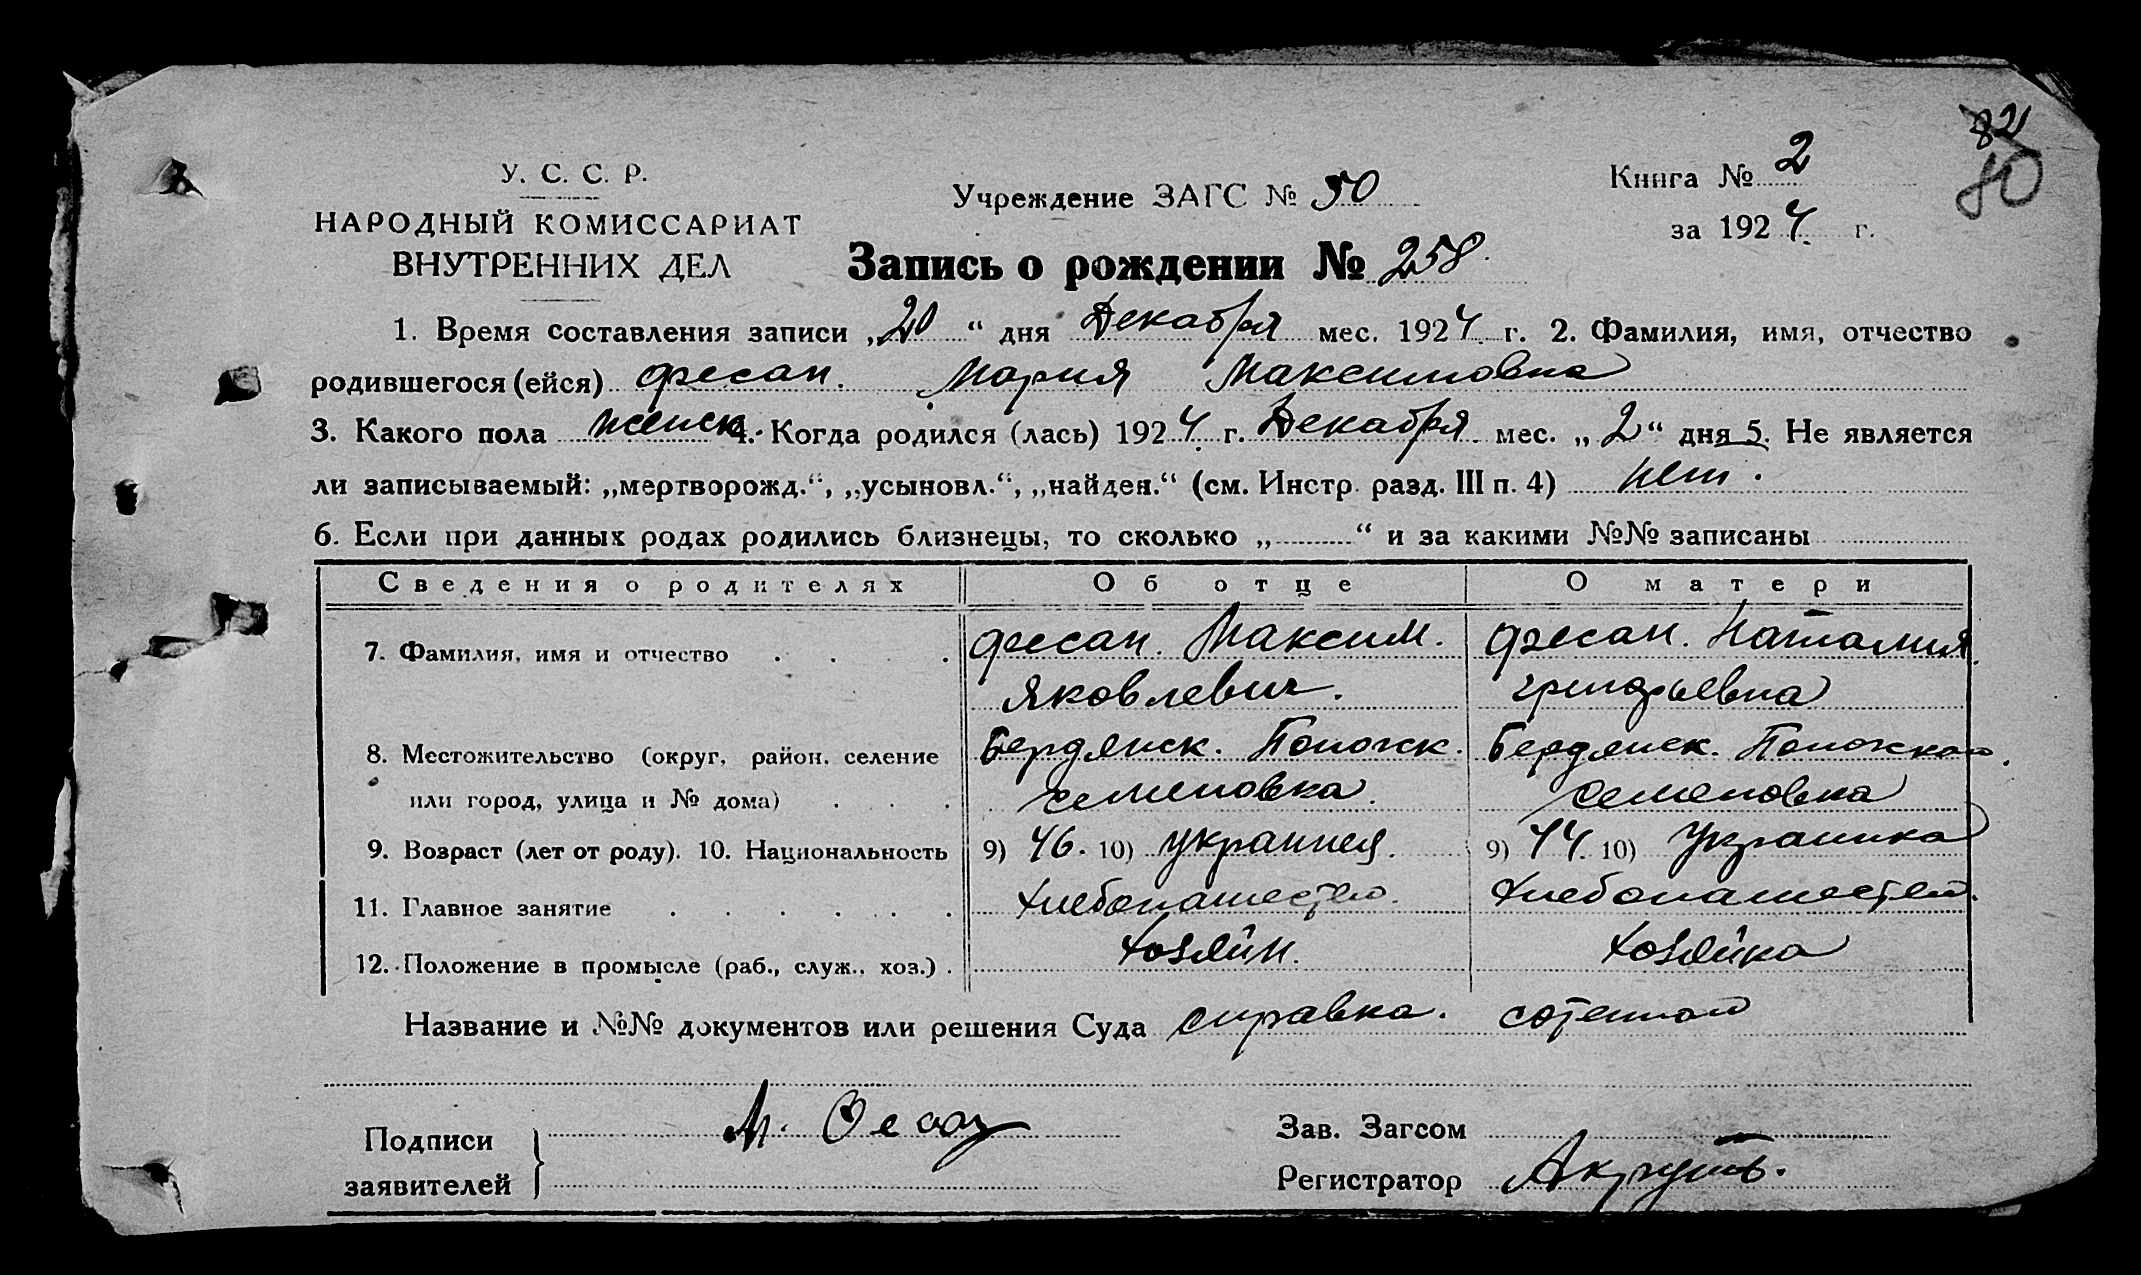 82
80
У. С. С. Р.
НАРОДНЫЙ КОМИССАРИАТ
ВНУТРЕННИХ ДЕЛ
Учреждение ЗАГС № 50
Книга № 2
за 1924 г.
Запись о рождении № 258.
1. Время составления записи „20“ дня Декабря мес. 1924 г. 2. Фамилия, имя, отчество
родившегося (ейся) Фесан. Мария Максимовна
3. Какого пола женск. 4. Когда родился (лась) 1924 г. Декабря мес. „2“ дня 5. Не является
ли записываемый: „мертворожд.“, „усыновл.“, „найден.“ (см. Инстр. разд. III п. 4) нет.
6. Если при данных родах родились близнецы, то сколько „ “ и за какими №№ записаны
Сведения о родителях Об отце О матери
7. Фамилия, имя и отчество Фесан. Максим. Фесан. Наталия
Яковлевич. Григорьевна
8. Местожительство (округ, район, селение Бердянск. Пологск. Бердянск. Пологского
или город, улица и № дома) Семеновка. Семеновка
9. Возраст (лет от роду). 10. Национальность 9) 46. 10) украинец. 9) 44. 10) Украинка
11. Главное занятие Хлебопашество. Хлебопашество.
12. Положение в промысле (раб., служ., хоз.) Хозяин. Хозяйка
Название и №№ документов или решения Суда справка. сотенного
Подписи
заявителей
М. Фесан
Зав. Загсом
Регистратор